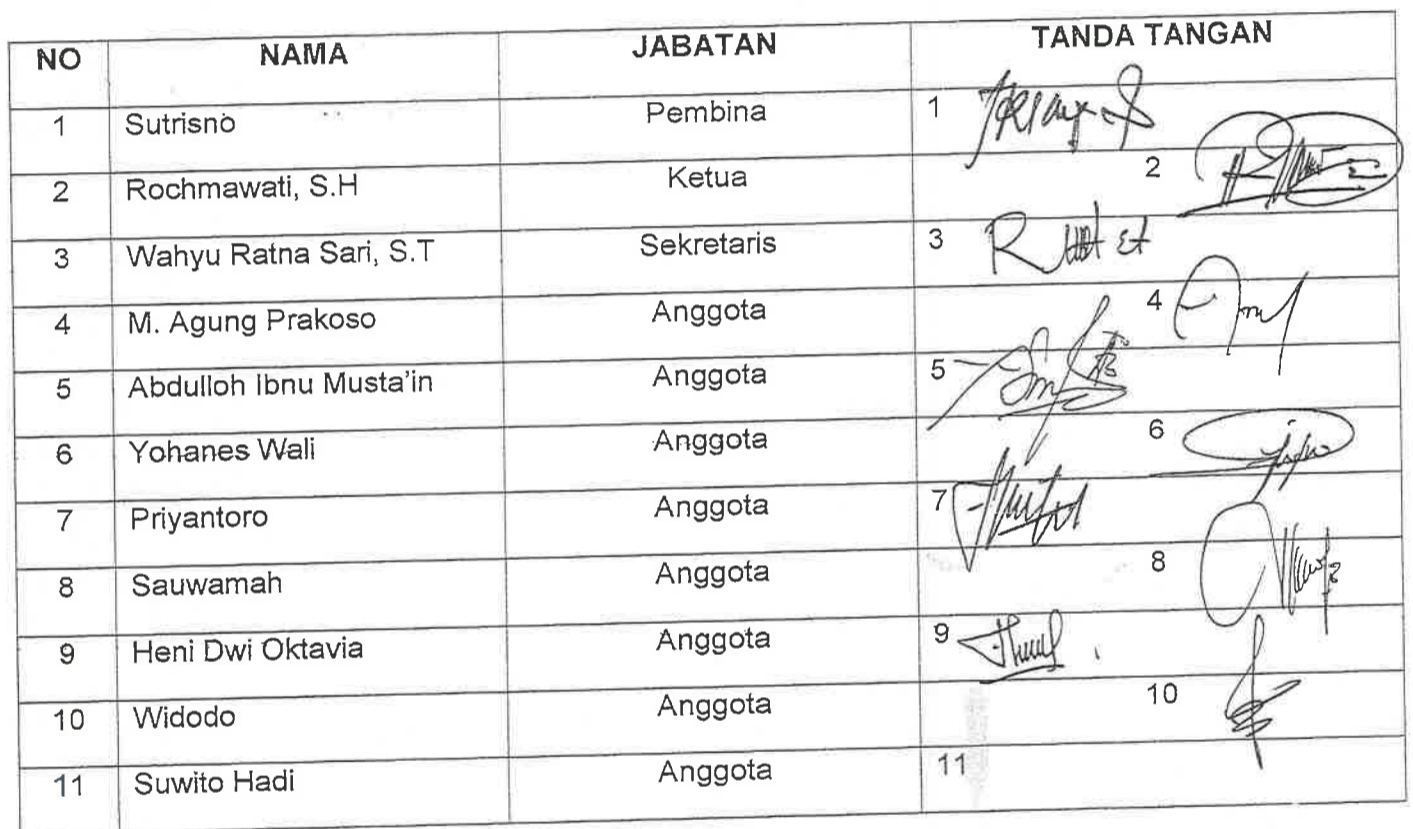 NO NAMA JABATAN TANDA TANGAN
1 Sutrisno Pembina 1
2 Rochmawati, S.H Ketua 2
3 Wahyu Ratna Sari, S.T Sekretaris 3
4 M. Agung Prakoso Anggota 4
5 Abdulloh Ibnu Musta'in Anggota 5
6 Yohanes Wali Anggota 6
7 Priyantoro Anggota 7
8 Sauwamah Anggota 8
9 Heni Dwi Oktavia Anggota 9
10 Widodo Anggota 10
11 Suwito Hadi Anggota 11